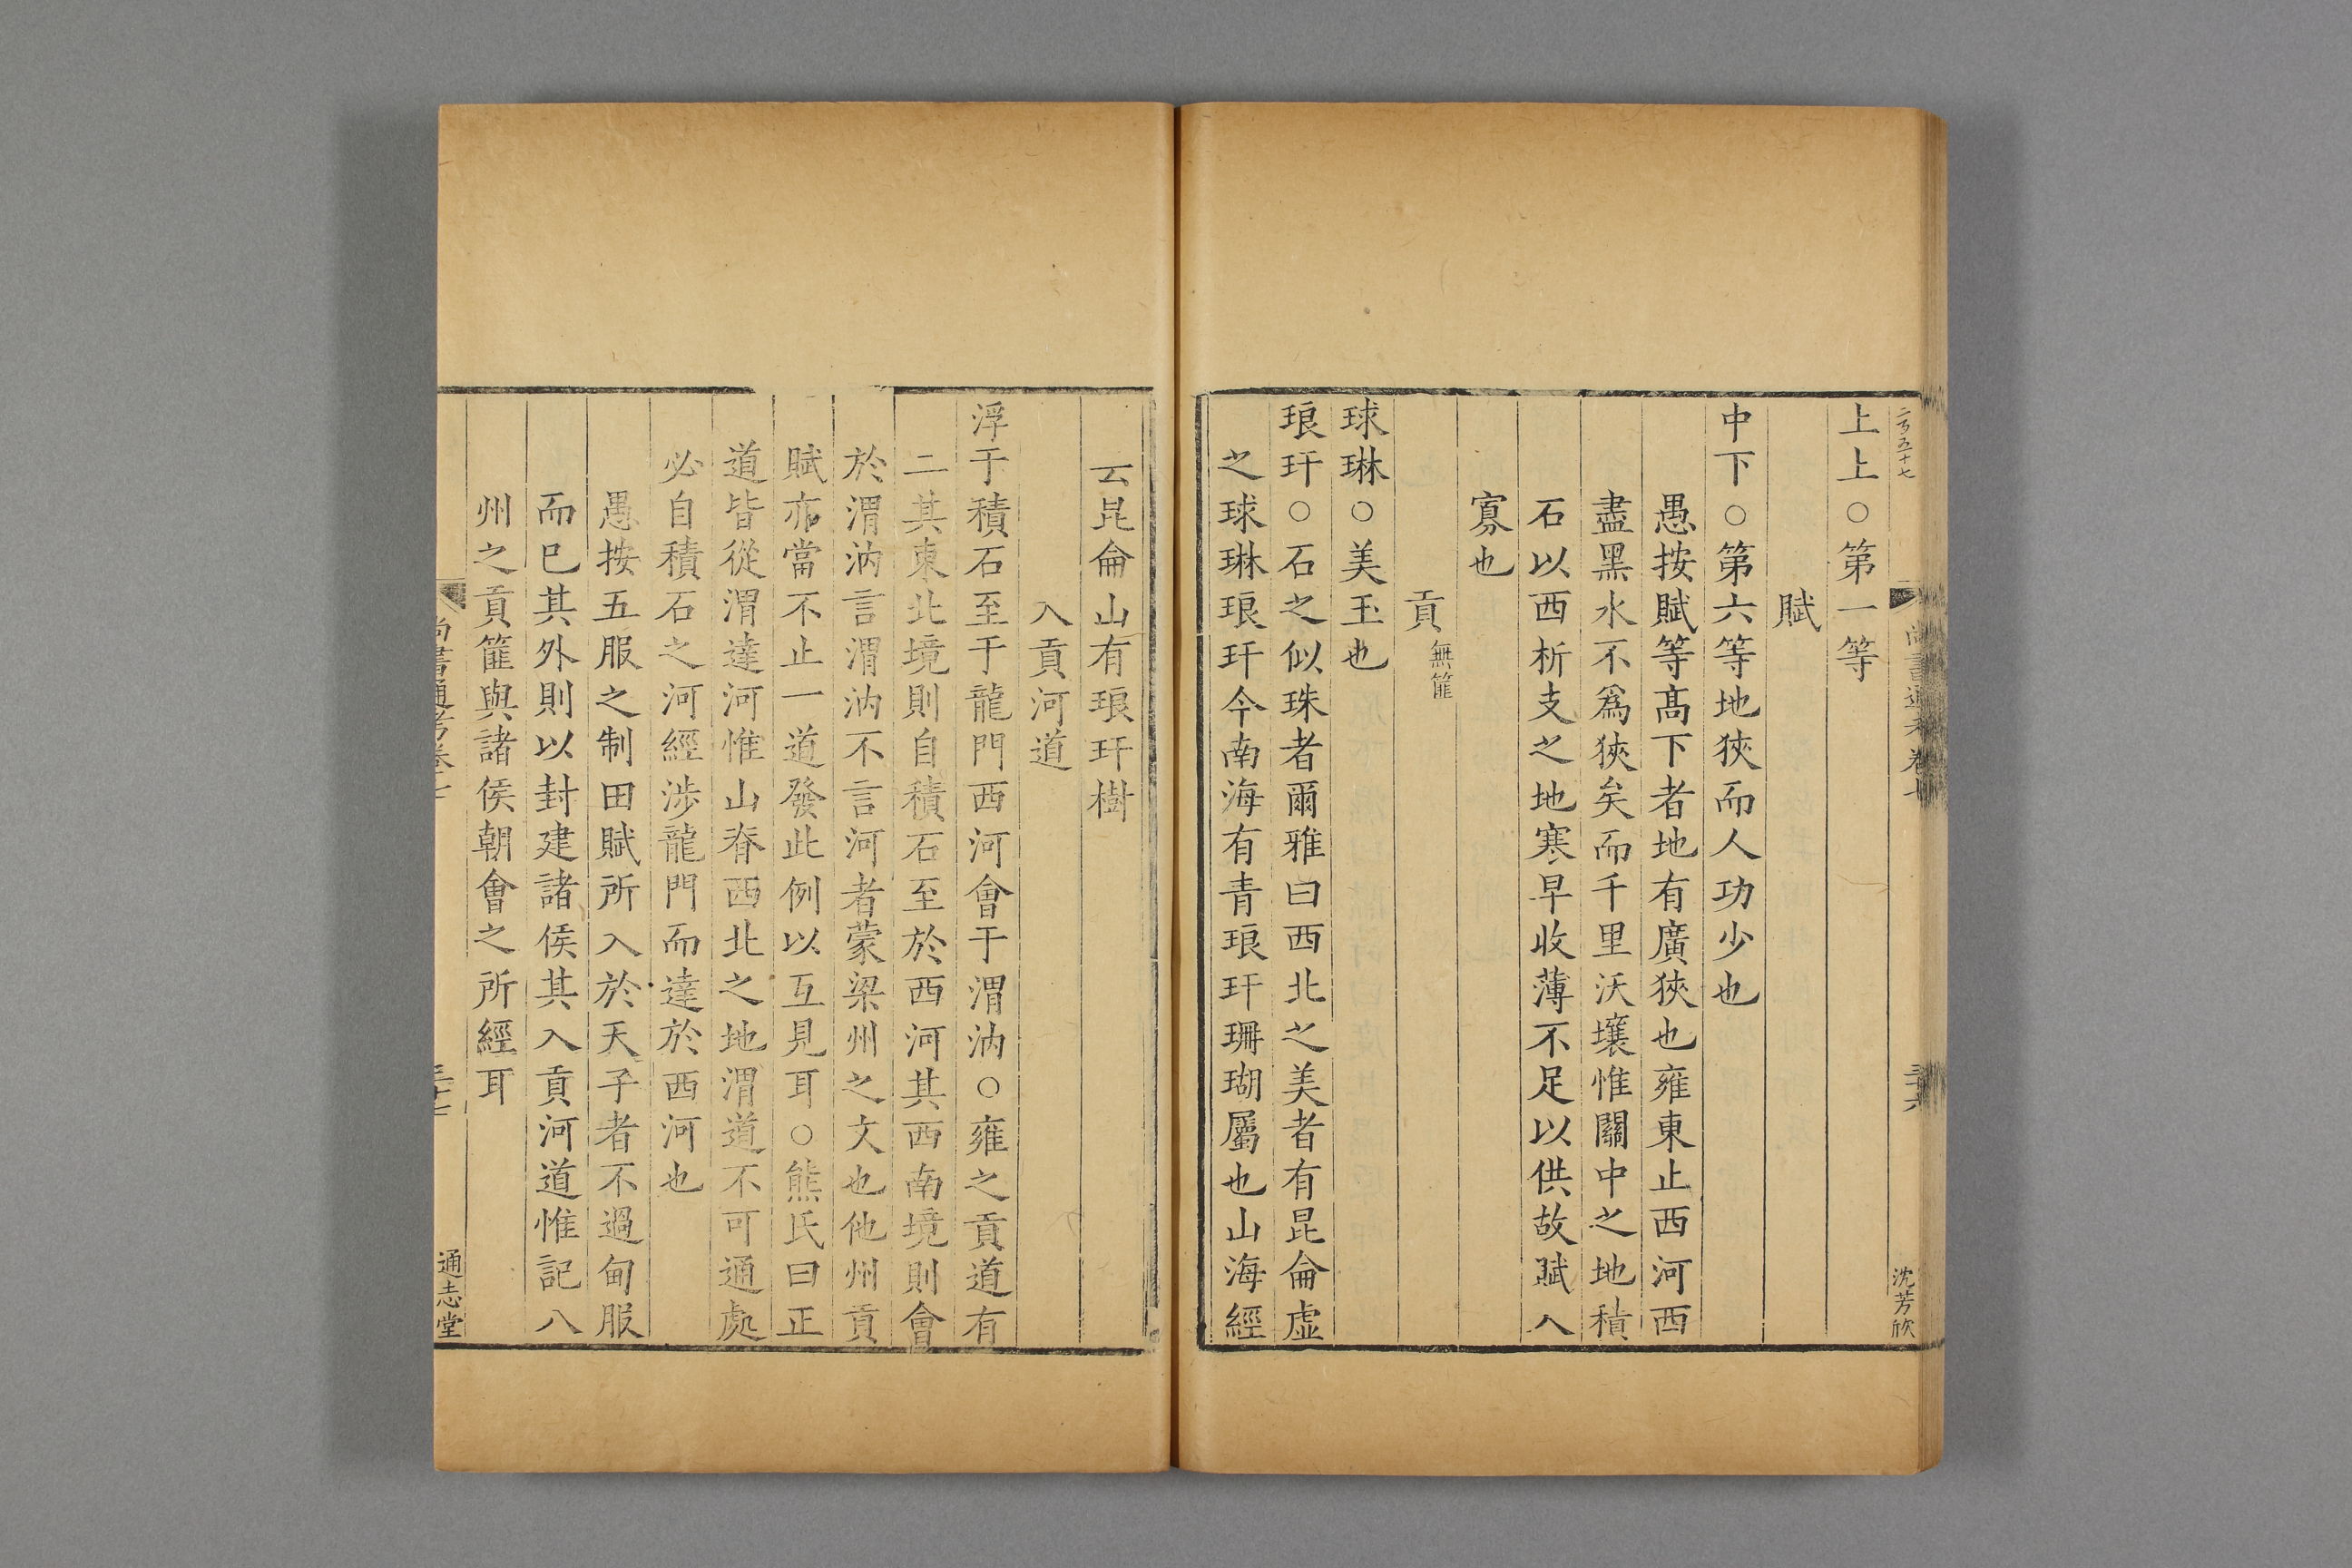 二百五十七
尚書通考卷七
三十六
沈芳欣
上上○第一等
賦
中下○第六等地狹而人功少也
愚按賦等高下者地有廣狹也雍東止西河西
盡黑水不爲狹矣而千里沃壤惟關中之地積
石以西析支之地寒早收薄不足以供故賦入
寡也
貢無篚
球琳○美玉也
琅玕○石之似珠者爾雅曰西北之美者有昆侖虛
之球琳琅玕今南海有青琅玕珊瑚屬也山海經
云昆侖山有琅玕樹
入貢河道
浮于積石至于龍門西河會于渭汭○雍之貢道有
二其東北境則自積石至於西河其西南境則會
於渭汭言渭汭不言河者蒙梁州之文也他州貢
賦亦當不止一道發此例以互見耳○熊氏曰正
道皆從渭達河惟山脊西北之地渭道不可通處
必自積石之河經涉龍門而達於西河也
愚按五服之制田賦所入於天子者不過甸服
而已其外則以封建諸侯其入貢河道惟記八
州之貢篚與諸侯朝會之所經耳
尚書通考卷七
三十七
通志堂